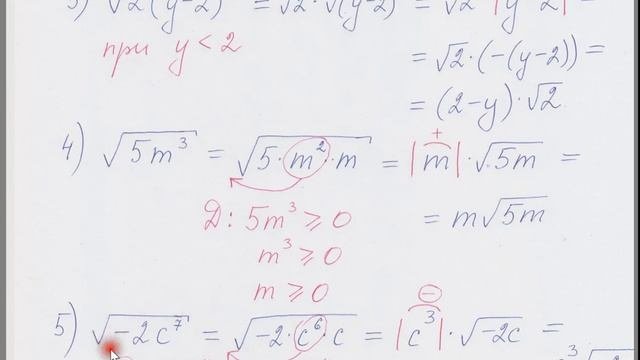 3) √2(y-2)² = √2·√(y-2)² = √2·|y-2| =
при y < 2
= √2·(-(y-2)) =
= (2-y)·√2
4) √5m³ = √5·m²·m = |m|·√5m =
+
Д: 5m³ ⩾ 0
= m√5m
m³ ⩾ 0
m ⩾ 0
5) √-2c⁷ = √-2·c⁶·c = |c³|·√-2c =
−